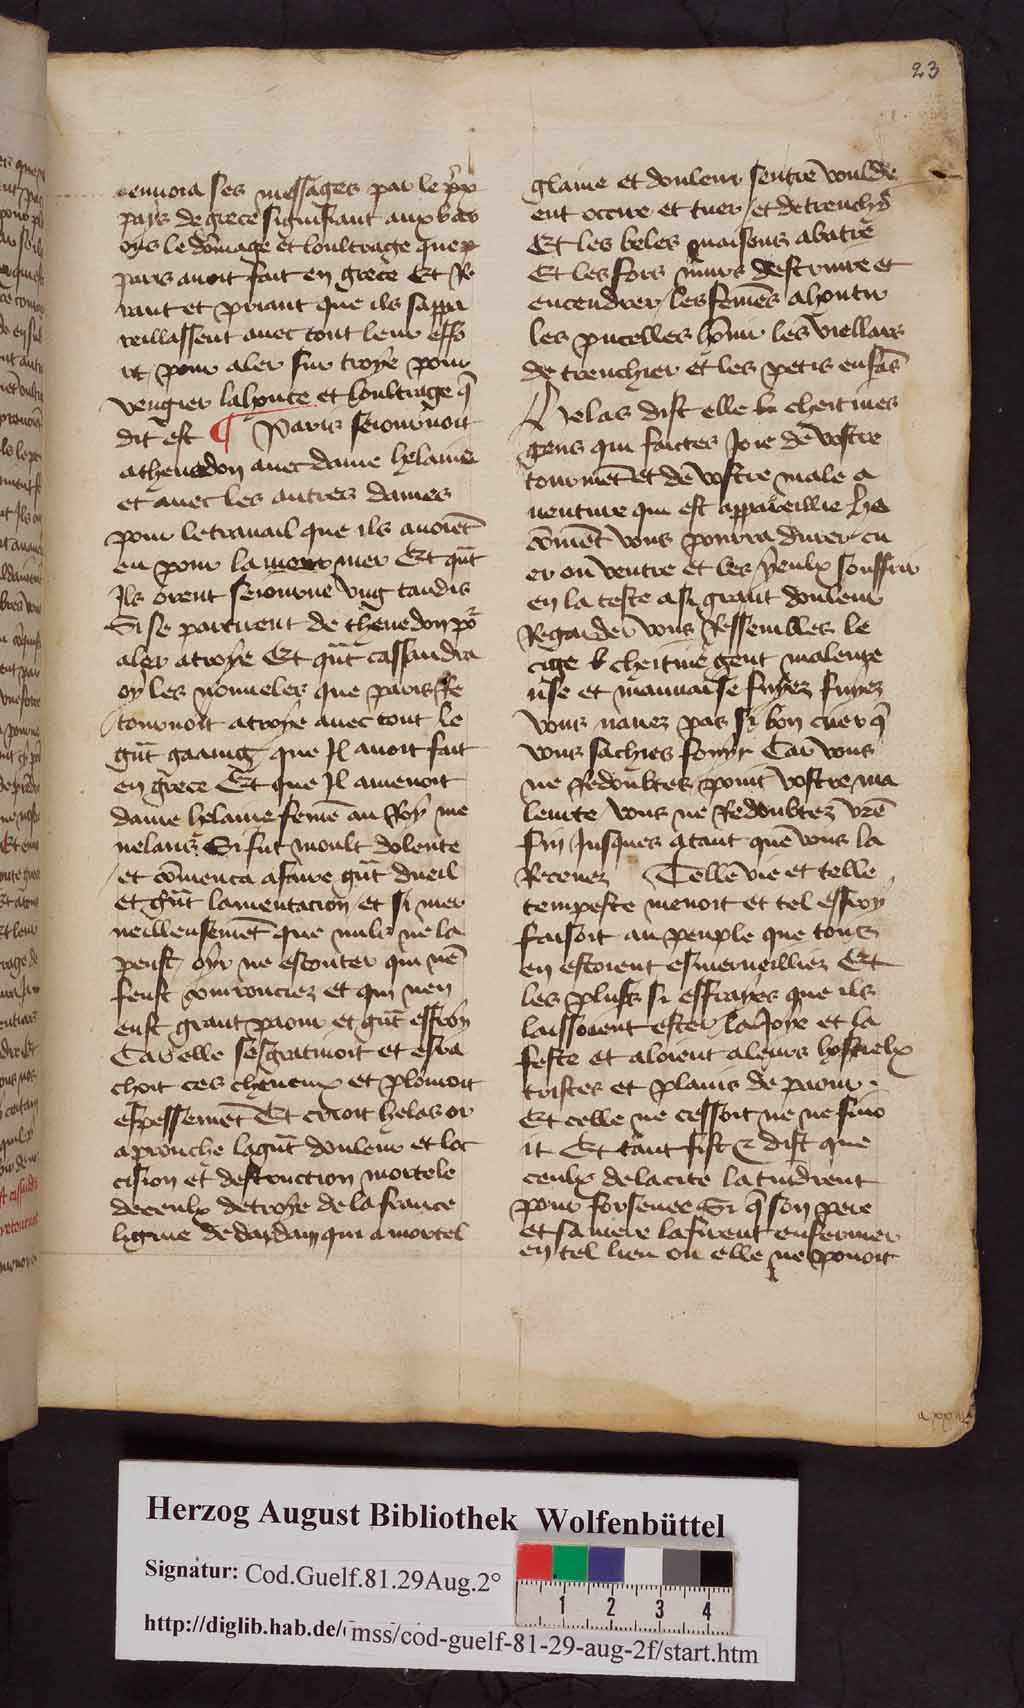 23
enuoia ses messages par le
pays de grece signifiant aux
oys le dōmage et loultrage que
paris auoit fait en grece Et Re
rant et priant que ils sappa
reillassent auec tout leur effo
rt pour aler sur troye pour
vengier lahonte et loultrage q̄
dit est ¶ Paris seiournoit
athenedon auec dame helaine
et auec les autres dames
pour letrauail que ils auoiēt
eu pour la mer Et qūt
Ils orent seiourne vng tandis
Si se partirent de thenedon
aler atroye Et qūt cassandra
oy les nouueles que paris Re
tournoit atroye auec tout le
gūt gaaing que Il auoit fait
en grece Et que Il amenoit
dame helaine femē au Roy me
nelaus Si fut moult dolente
et cōmenca afaire gūt dueil
et gūt lamentacion et si mer
ueilleusemēt que nulz ne la
peust oyr ne escouter qui nē
feust courouciez et qui nen
eust grant paour et gūt effroy
Car elle sesgratinoit et esra
choit ces cheueux et plouroit
espessemēt Et crioit helas or
aprouche lagūt douleur et loc
cision et destruction mortele
deceulx detroye de la france
lignie de dardam qui a mortel
glaiue et douleur
ent occire et tuer et detrenchier
Et les beles maisons abatre
Et les fors murs destruire et
encendrer les femēs ahontir
les pucelles hōnir les viellars
de trenchier et les petis enfās
Helas dist elle cheitiues
gens qui faictes Ioie de vostre
tourmēt et de vostre male a
uenture qui est appareillie he
cōmēt vous pourra durer cu
er ou ventre et les yeulx souffrir
en la teste a si grant douleur
Regarder vous Ressembles le
cheitiue gent maleure
use et mauuaise fuyez fuyez
vous nauez pas si bon cuer q̄
vous sachies fouyr Car vous
ne Redoubtes point vostre ma
leurte vous ne Redoubtez vrē
fin Iusques atant que vous la
Receuez Telle vie et telle
tempeste menoit et tel effroy
faisoit au peuple que tous
en estoient esmerueilliez Et
les plusrs si effrayes que ils
laissoient ester la Ioye et la
feste et aloient aleurs hostielx
tristes et plains de paour .
Et celle ne cessoit ne ne fino
it Et tant fist & dist que
ceulx delacite la tindrent
pour forsenee Si q̄ son pere
et samere lafirent enfermer
en tel lieu ou elle ne pouoit
Herzog August Bibliothek Wolfenbüttel
Signatur: Cod.Guelf.81.29Aug.2°
1 2 3 4
http://diglib.hab.de/mss/cod-guelf-81-29-aug-2f/start.htm